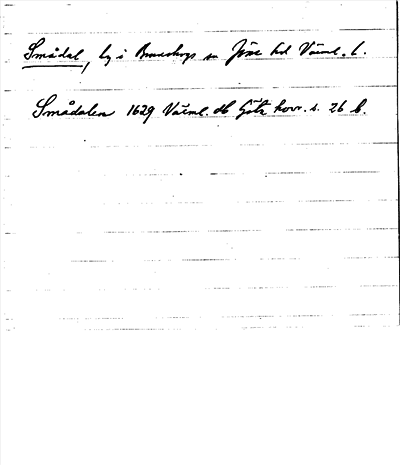 Smådal, by i Brunskogs sn Jöse hd Värml. l.
Smådalen 1629 Värml. db Göta hovr. s. 26 b.